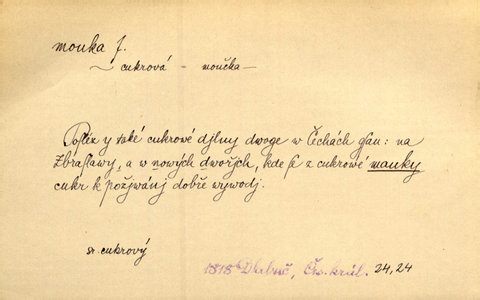 mouka f.
~ cukrová – moučka –
Posléz y také cukrové djlny dwoge w Čechách gsau: na
Zbraslawy, a w nowých dwořjch, kde se z cukrové mauky
cukr k požjwánj dobře wywodj.
sr. cukrový
1818 Dlabač, Čes. král. 24,24